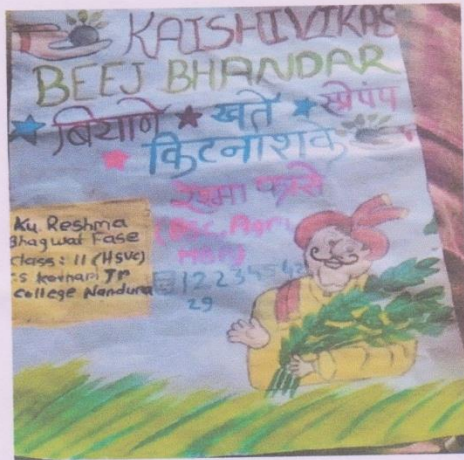 KAISHIVIKAS
BEEJ BHANDAR
★ बियाणे ★ खते ★ स्प्रेपंप
★ किटनाशके
रेश्मा फासे
(BSC, Agri,
Ku. Reshma
Bhagwat Fase
class : 11 (HSVC)
College Nandura
29